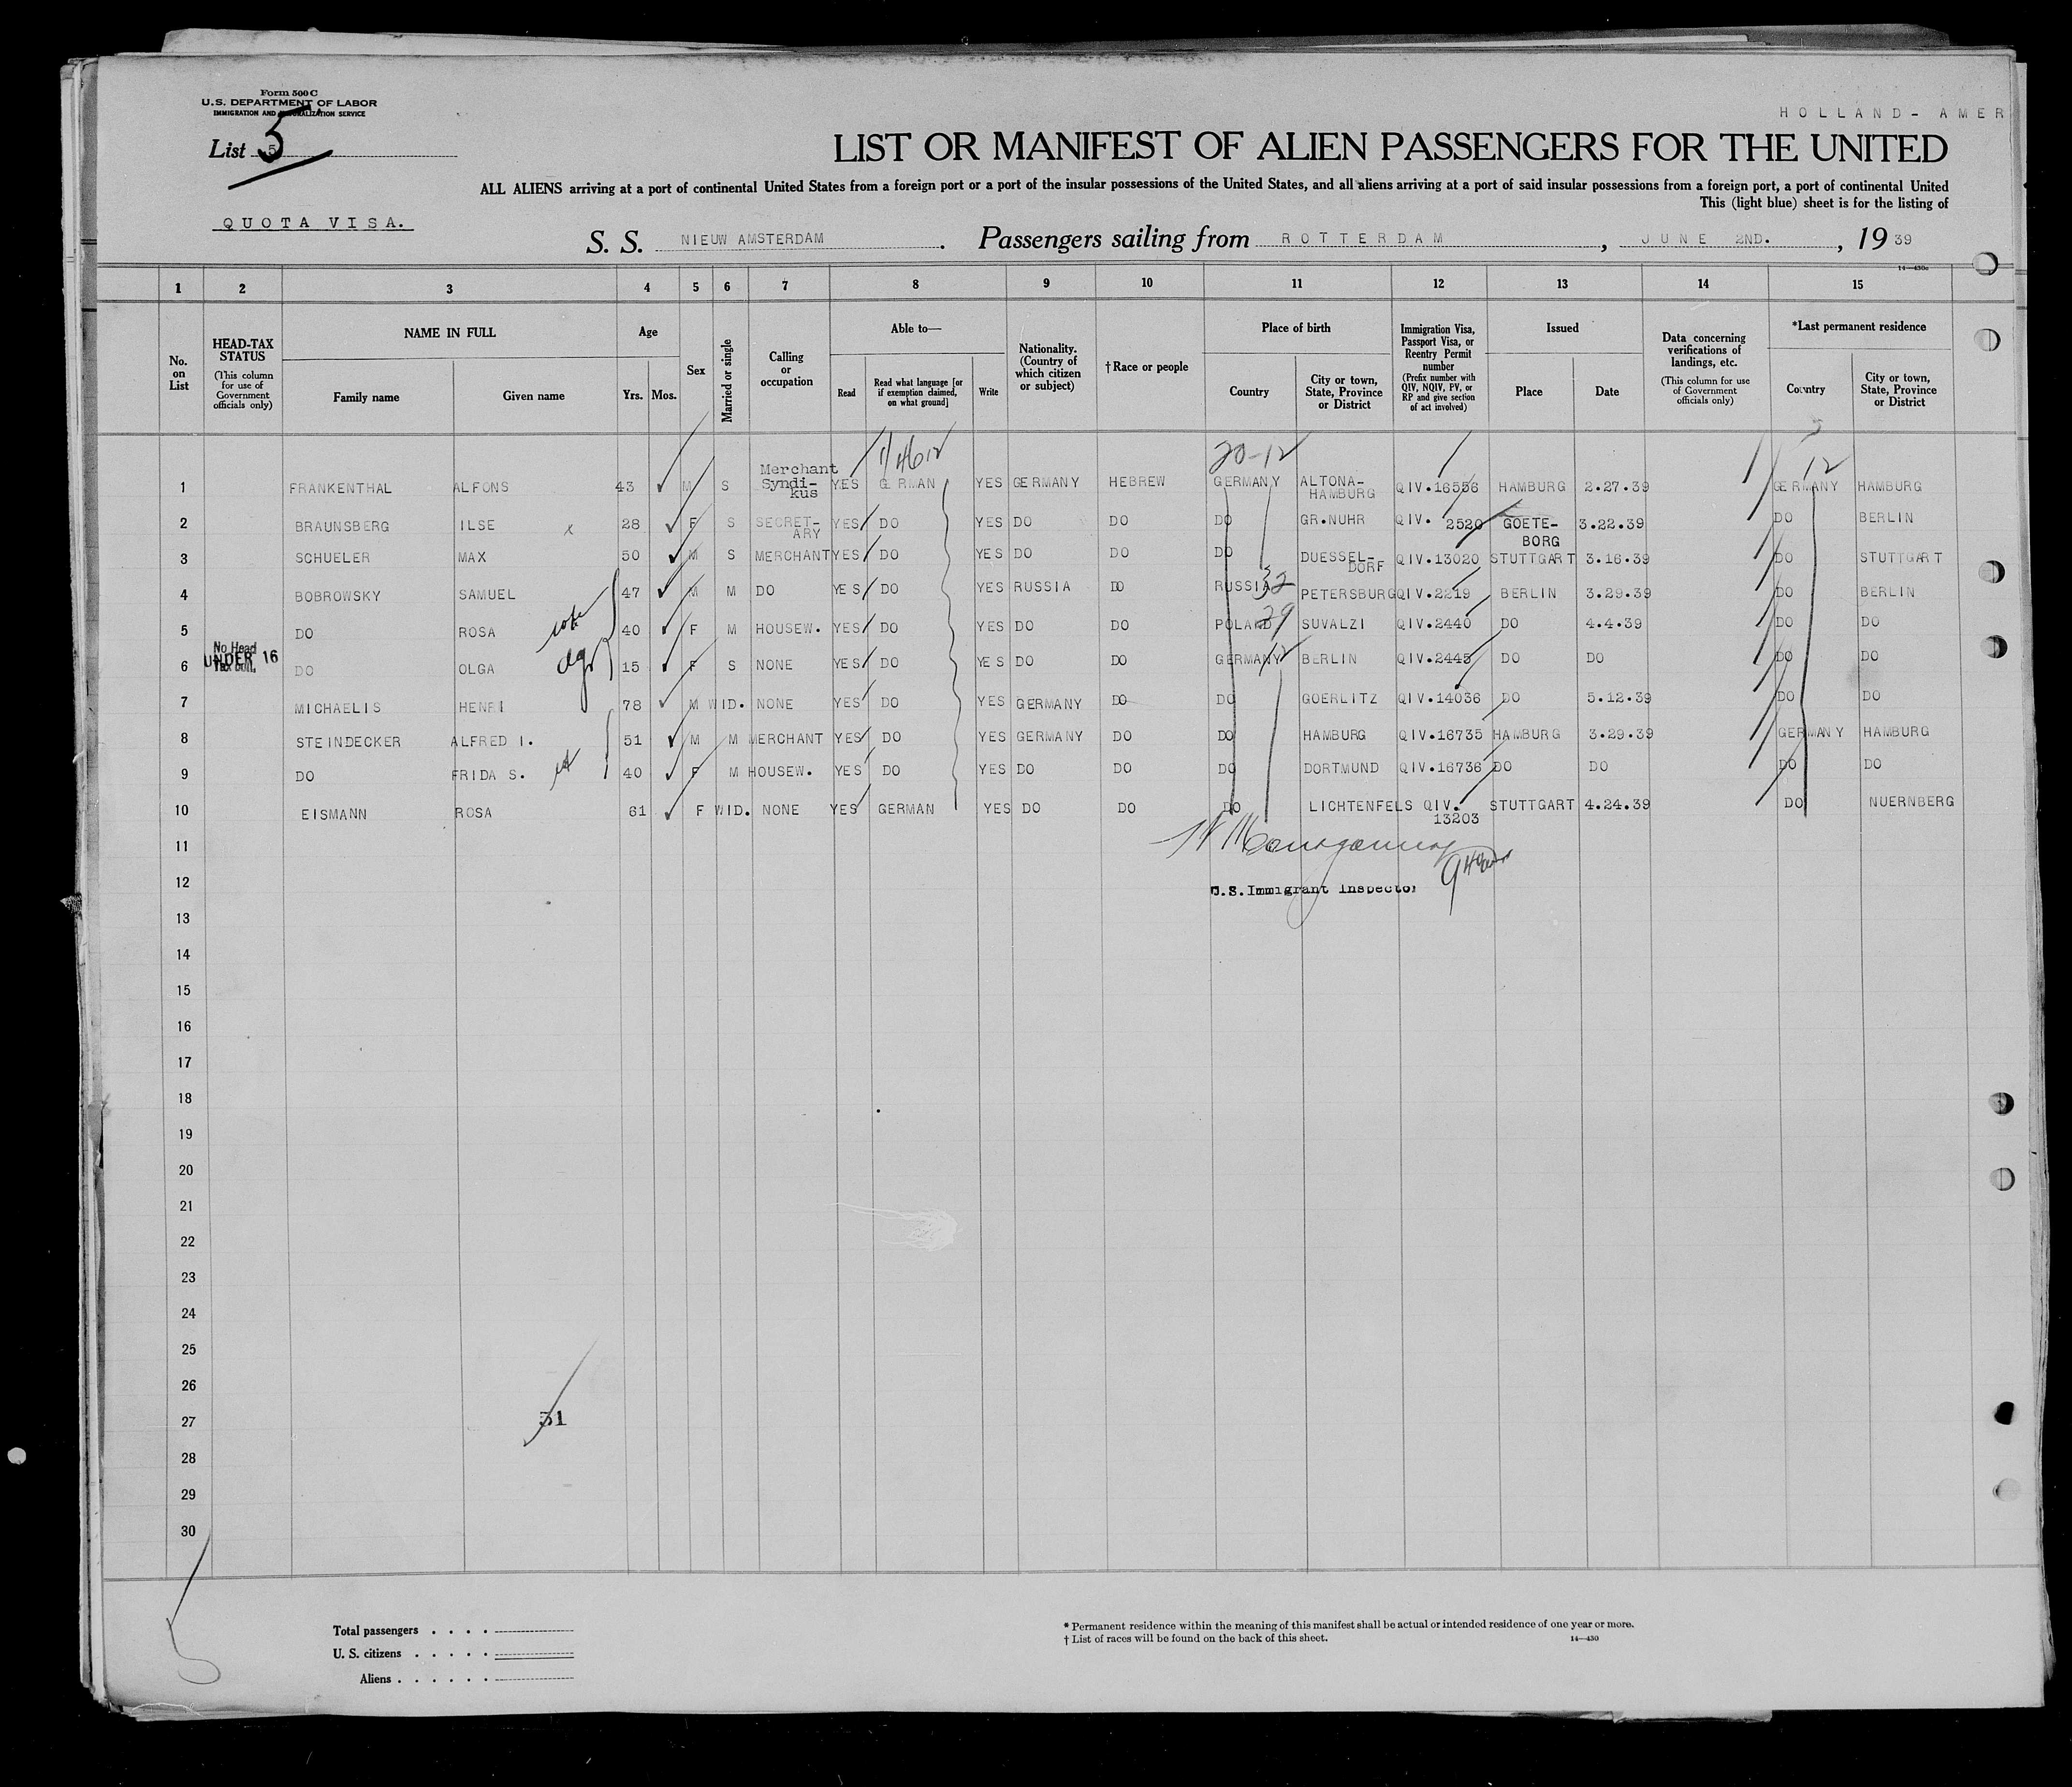 Form 500 C
U.S. DEPARTMENT OF LABOR
IMMIGRATION AND NATURALIZATION SERVICE
HOLLAND- AMER
List 5
5
LIST OR MANIFEST OF ALIEN PASSENGERS FOR THE UNITED
ALL ALIENS arriving at a port of continental United States from a foreign port or a port of the insular possessions of the United States, and all aliens arriving at a port of said insular possessions from a foreign port, a port of continental United
This (light blue) sheet is for the listing of
QUOTA VISA.
S. S. NIEUW AMSTERDAM . Passengers sailing from ROTTERDAM , JUNE 2ND. , 19 39
14—430c
1 2 3 4 5 6 7 8 9 10 11 12 13 14 15
No. on List
HEAD-TAX STATUS (This column for use of Government officials only)
NAME IN FULL
Family name Given name
Age
Yrs. Mos.
Sex
Married or single
Calling or occupation
Able to—
Read
Read what language [or if exemption claimed, on what ground]
Write
Nationality. (Country of which citizen or subject)
†Race or people
Place of birth
Country
City or town, State, Province or District
Immigration Visa, Passport Visa, or Reentry Permit number (Prefix number with QIV, NQIV, PV, or RP and give section of act involved)
Issued
Place Date
Data concerning verifications of landings, etc. (This column for use of Government officials only)
*Last permanent residence
Country
City or town, State, Province or District
20-12
12
1 FRANKENTHAL ALFONS 43 M S Merchant Syndi-kus YES GERMAN YES GERMANY HEBREW GERMANY ALTONA-HAMBURG QIV.16556 HAMBURG 2.27.39 GERMANY HAMBURG
2 BRAUNSBERG ILSE x 28 F S SECRET-ARY YES DO YES DO DO DO GR.NUHR QIV. 2520 GOETE-BORG 3.22.39 DO BERLIN
3 SCHUELER MAX 50 M S MERCHANT YES DO YES DO DO DO DUESSEL-DORF QIV.13020 STUTTGART 3.16.39 DO STUTTGART
4 BOBROWSKY SAMUEL 47 M M DO YES DO YES RUSSIA DO RUSSIA 32 PETERSBURG QIV.2219 BERLIN 3.29.39 DO BERLIN
5 DO ROSA 40 F M HOUSEW. YES DO YES DO DO POLAND 29 SUVALZI QIV.2440 DO 4.4.39 DO DO
No Head Tax Coll. UNDER 16
6 DO OLGA 15 F S NONE YES DO YES DO DO GERMANY 12 BERLIN QIV.2445 DO DO DO DO
7 MICHAELIS HENRI 78 M WID. NONE YES DO YES GERMANY DO DO GOERLITZ QIV.14036 DO 5.12.39 DO DO
8 STEINDECKER ALFRED I. 51 M M MERCHANT YES DO YES GERMANY DO DO HAMBURG QIV.16735 HAMBURG 3.29.39 GERMANY HAMBURG
9 DO FRIDA S. 40 F M HOUSEW. YES DO YES DO DO DO DORTMUND QIV.16736 DO DO DO DO
10 EISMANN ROSA 61 F WID. NONE YES GERMAN YES DO DO DO LICHTENFELS QIV. 13203 STUTTGART 4.24.39 DO NUERNBERG
11
12
U.S. Immigrant Inspector
13
14
15
16
17
18
19
20
21
22
23
24
25
26
27
51
28
29
30
Total passengers . . . .
U. S. citizens . . . . .
Aliens . . . . . .
* Permanent residence within the meaning of this manifest shall be actual or intended residence of one year or more.
† List of races will be found on the back of this sheet.
14—430